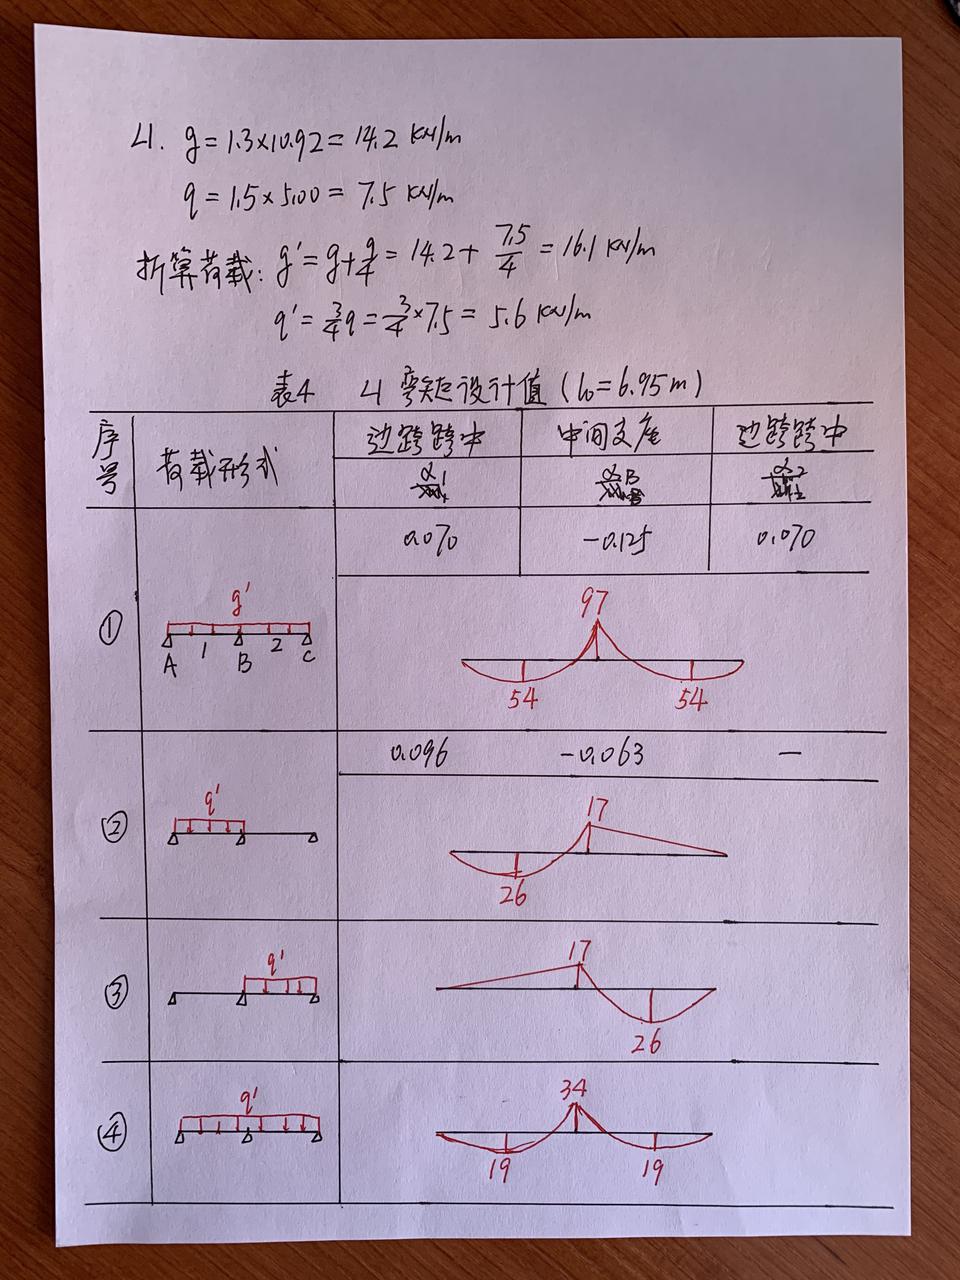 L1. g=1.3×10.92=14.2 kN/m
q=1.5×5.00=7.5 kN/m
折算荷载: g'=g+q/4=14.2+7.5/4=16.1 kN/m
q'=3/4q=3/4×7.5=5.6 kN/m
表4 L1 弯矩设计值(l0=6.95m)
序号 荷载形式 边跨跨中 中间支座 边跨跨中
α1 αB α2
0.070 -0.125 0.070
① g' 97
A 1 B 2 C
54 54
0.096 -0.063 —
② q' 17
26
③ q' 17
26
④ q' 34
19 19